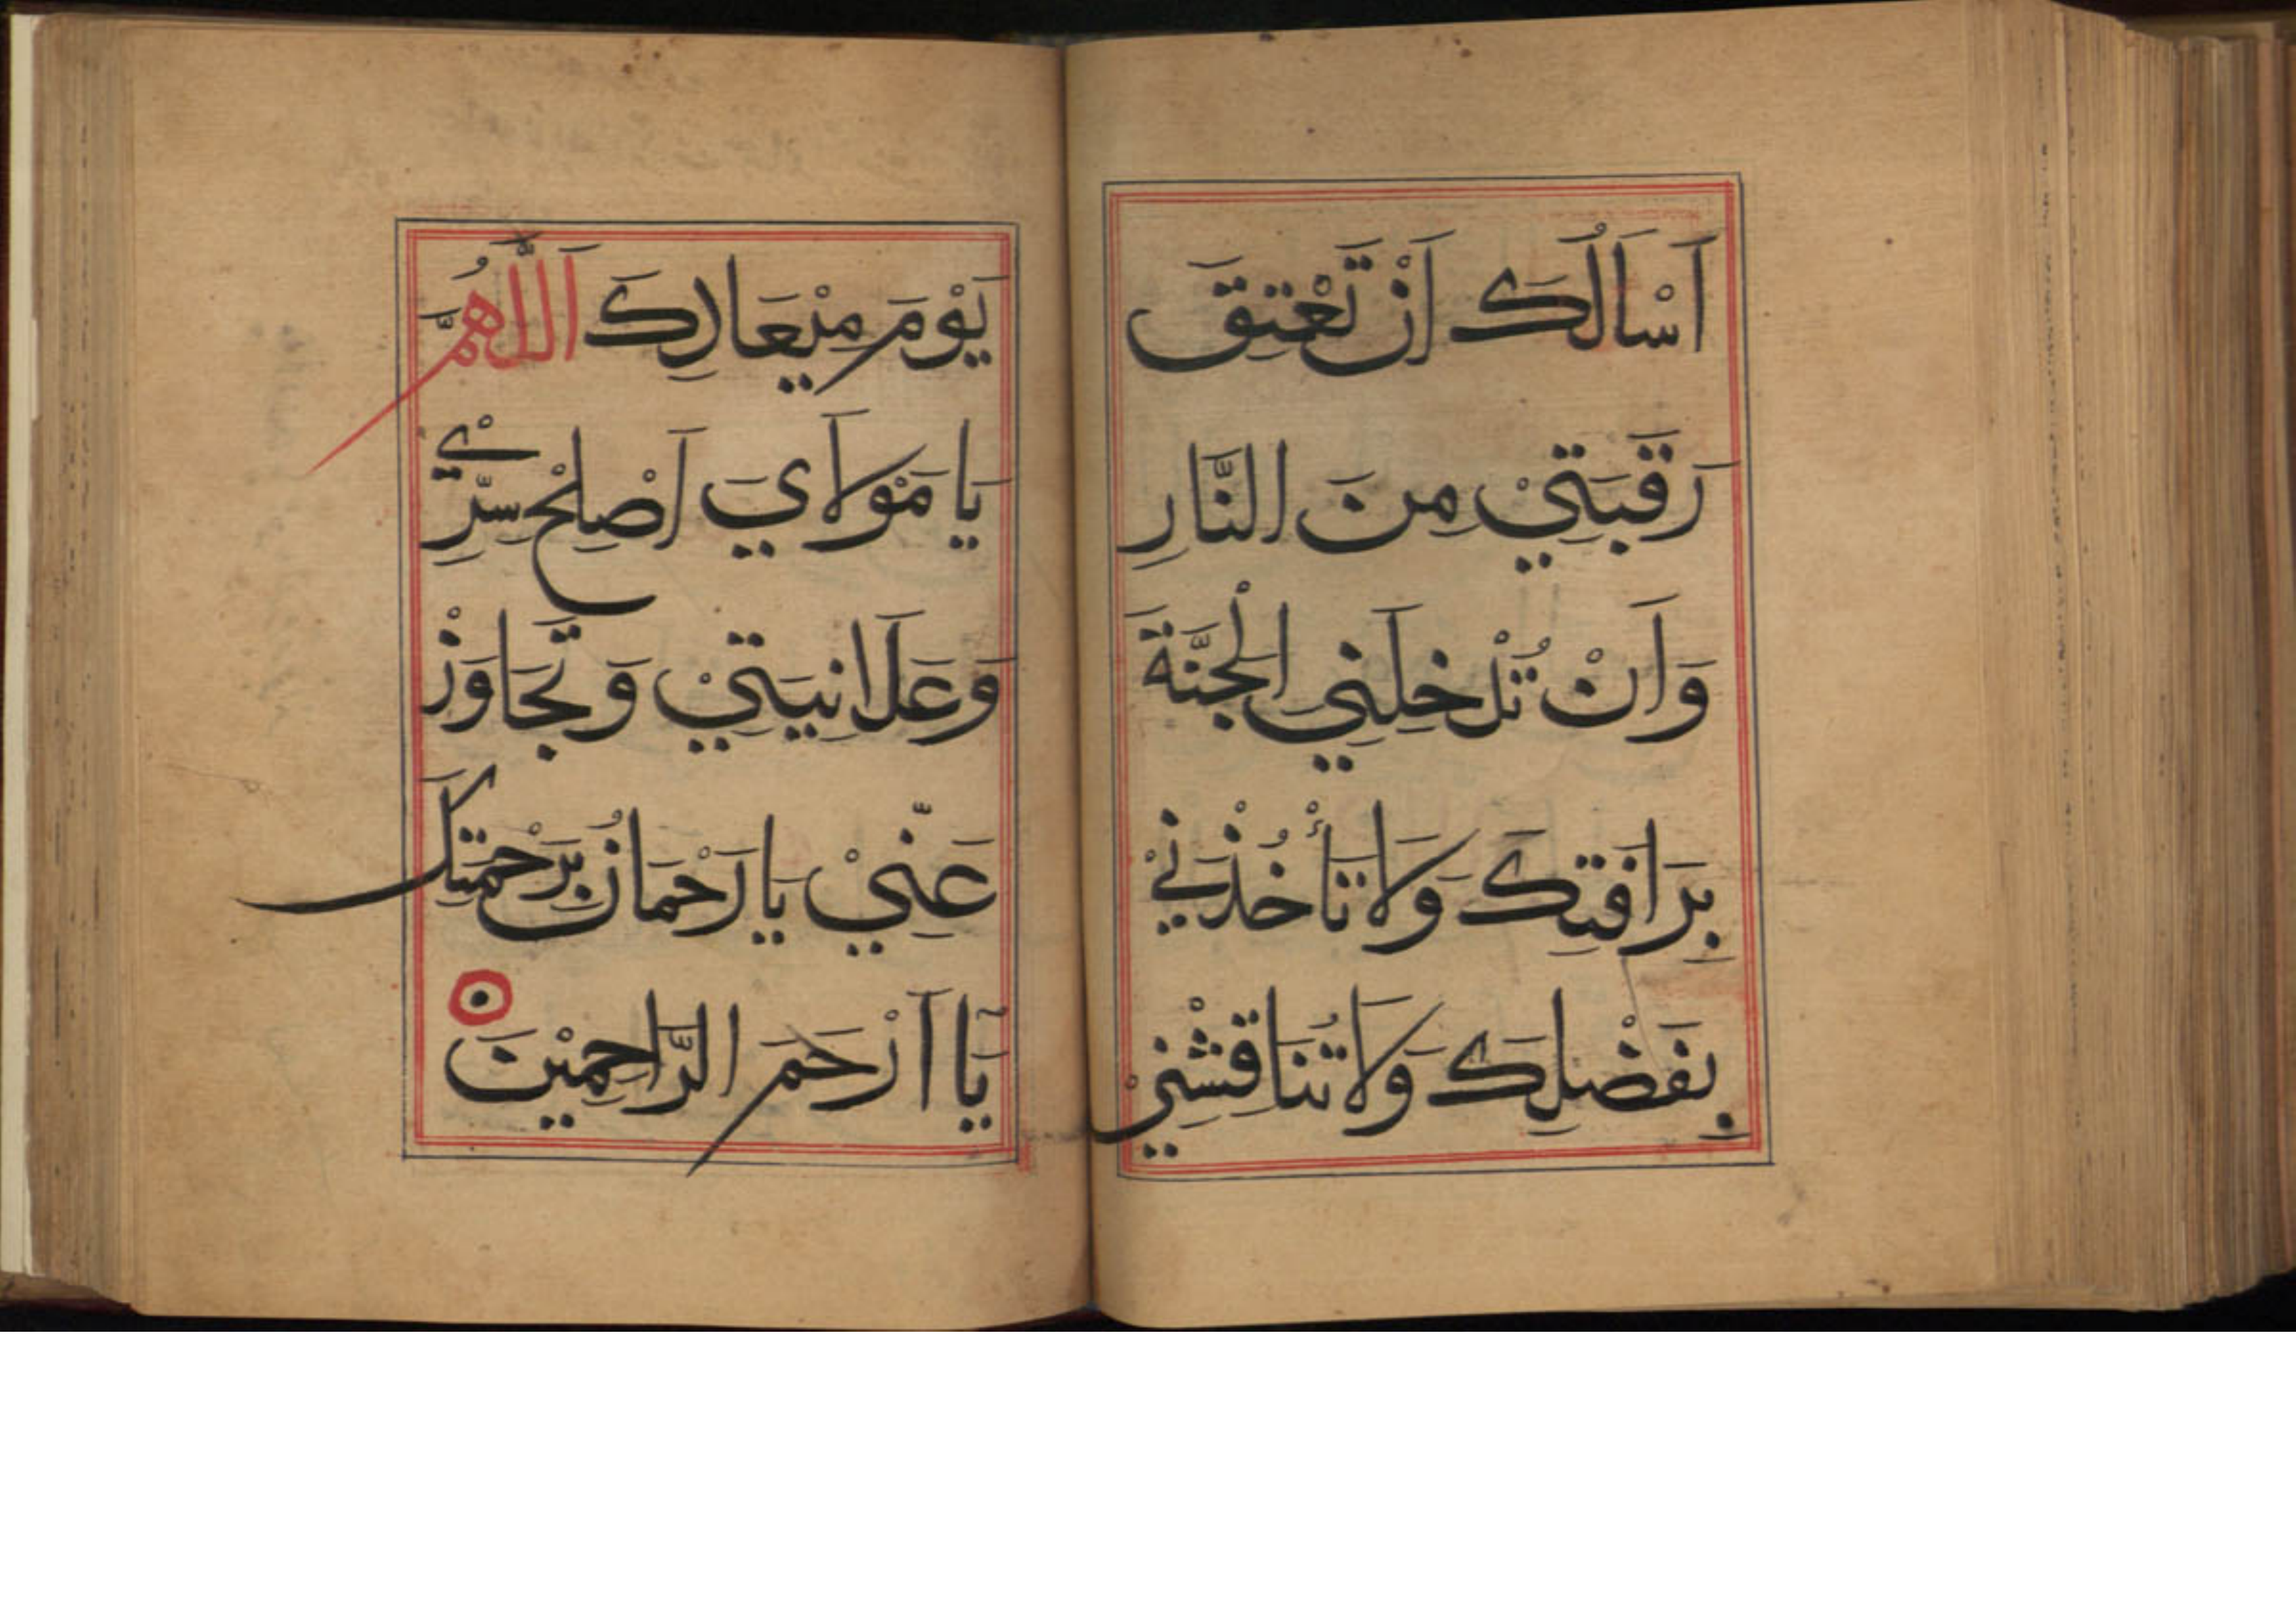 اَسْاَلُكَ اَنْ تَعْتِقَ
رَقَبَتِيْ مِنَ النَّارِ
وَاَنْ تُدْخِلَنِي الْجَنَّةَ
بِرَافَتِكَ وَلَا تَأْخُذْنِيْ
بِفَضْلِكَ وَلَا تُنَاقِشْنِيْ
يَوْمَ مِيْعَادِكَ اَللَّهُمَّ
يَا مَوْلَايَ اَصْلِحْ سِرِّيْ
وَعَلَانِيَتِيْ وَتَجَاوَزْ
عَنِّيْ يَا رَحْمَانُ بِرَحْمَتِكَ
يَآ اَرْحَمَ الرَّاحِمِيْنَ